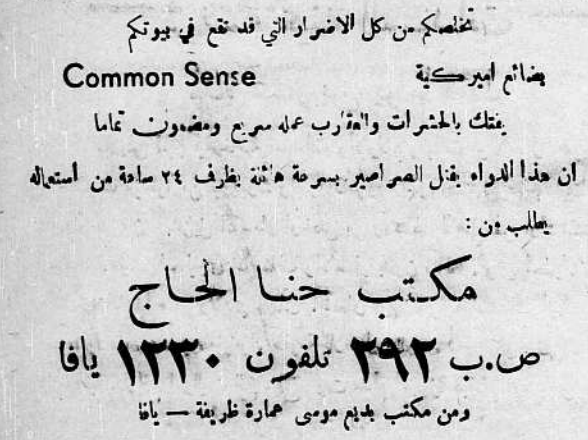 تخلصكم من كل الاضرار التي قد تقع في بيوتكم
بضائع اميركية Common Sense
يفتك بالحشرات والعقارب عمله سريع ومضمون تماما
ان هذا الدواء يقتل الصراصير بسرعة هائلة بظرف ٢٤ ساعة من استعماله
يطلب من :
مكتب حنا الحاج
ص.ب ٢٩٢ تلفون ١٢٣٠ يافا
ومن مكتب بديع موسى عمارة ظريفة — يافا